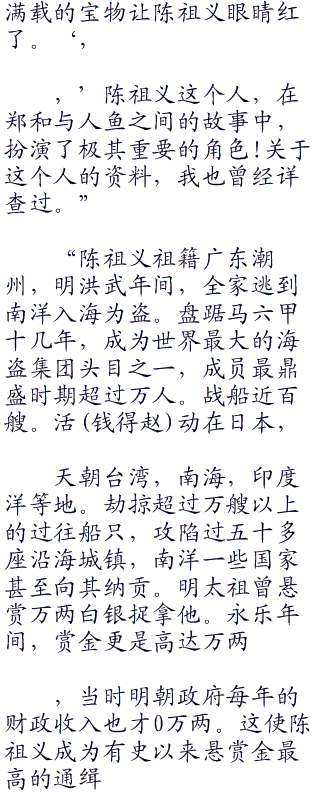 满载的宝物让陈祖义眼睛红
了。‘，
，’陈祖义这个人，在
郑和与人鱼之间的故事中，
扮演了极其重要的角色!关于
这个人的资料，我也曾经详
查过。”
“陈祖义祖籍广东潮
州，明洪武年间，全家逃到
南洋入海为盗。盘踞马六甲
十几年，成为世界最大的海
盗集团头目之一，成员最鼎
盛时期超过万人。战船近百
艘。活(钱得赵)动在日本，
天朝台湾，南海，印度
洋等地。劫掠超过万艘以上
的过往船只，攻陷过五十多
座沿海城镇，南洋一些国家
甚至向其纳贡。明太祖曾悬
赏万两白银捉拿他。永乐年
间，赏金更是高达万两
，当时明朝政府每年的
财政收入也才0万两。这使陈
祖义成为有史以来悬赏金最
高的通缉